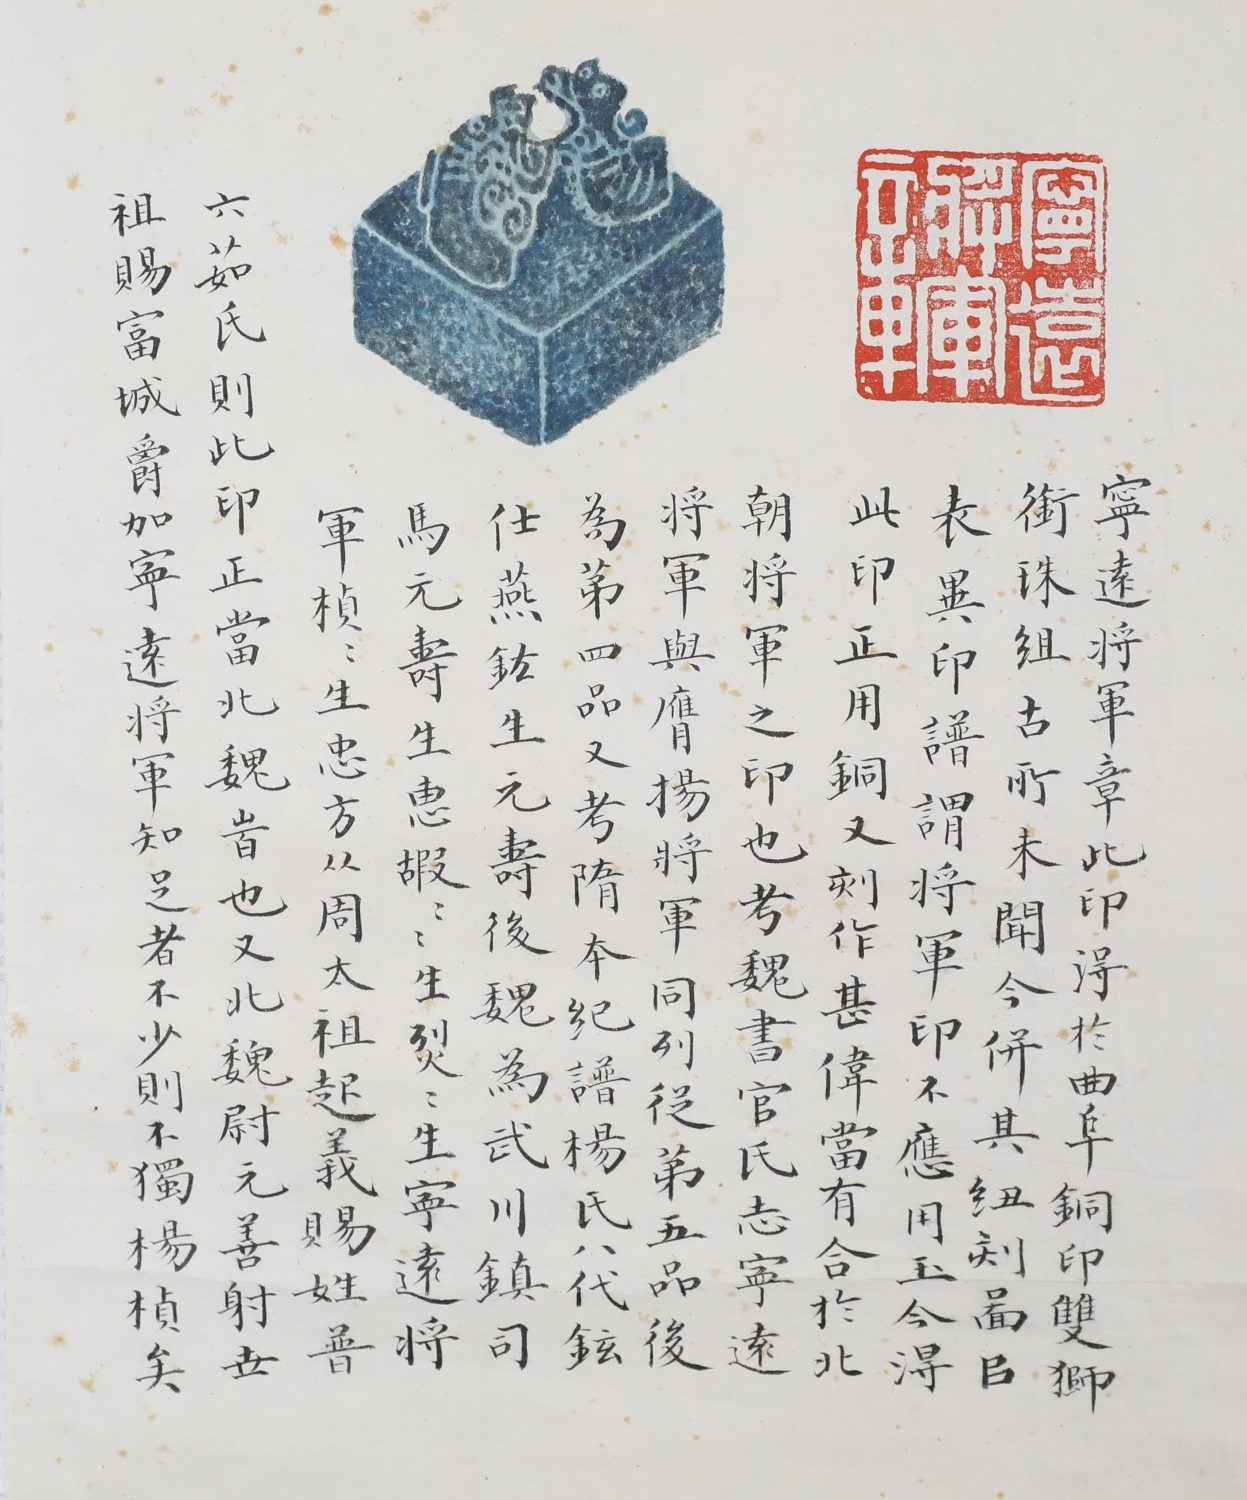 寧遠
將軍
章
寧遠将軍章此印淂於曲阜銅印雙獅
銜珠組古所未聞今併其紐刻啚㠯
表異印譜謂将軍印不應用玉今淂
此印正用銅又刻作甚偉當有合於北
朝将軍之印也考魏書官氏志寧遠
将軍與膺揚将軍同列從苐五品後
為苐四品又考隋本紀譜楊氏八代鉉
仕燕鉉生元壽後魏為武川鎮司
馬元壽生惠嘏〻〻生烈〻生寧遠将
軍楨〻生忠方从周太祖起義賜姓普
六茹氏則此印正當北魏旹也又北魏尉元善射世
祖賜富城爵加寧遠将軍知足者不少則不獨楊楨矣